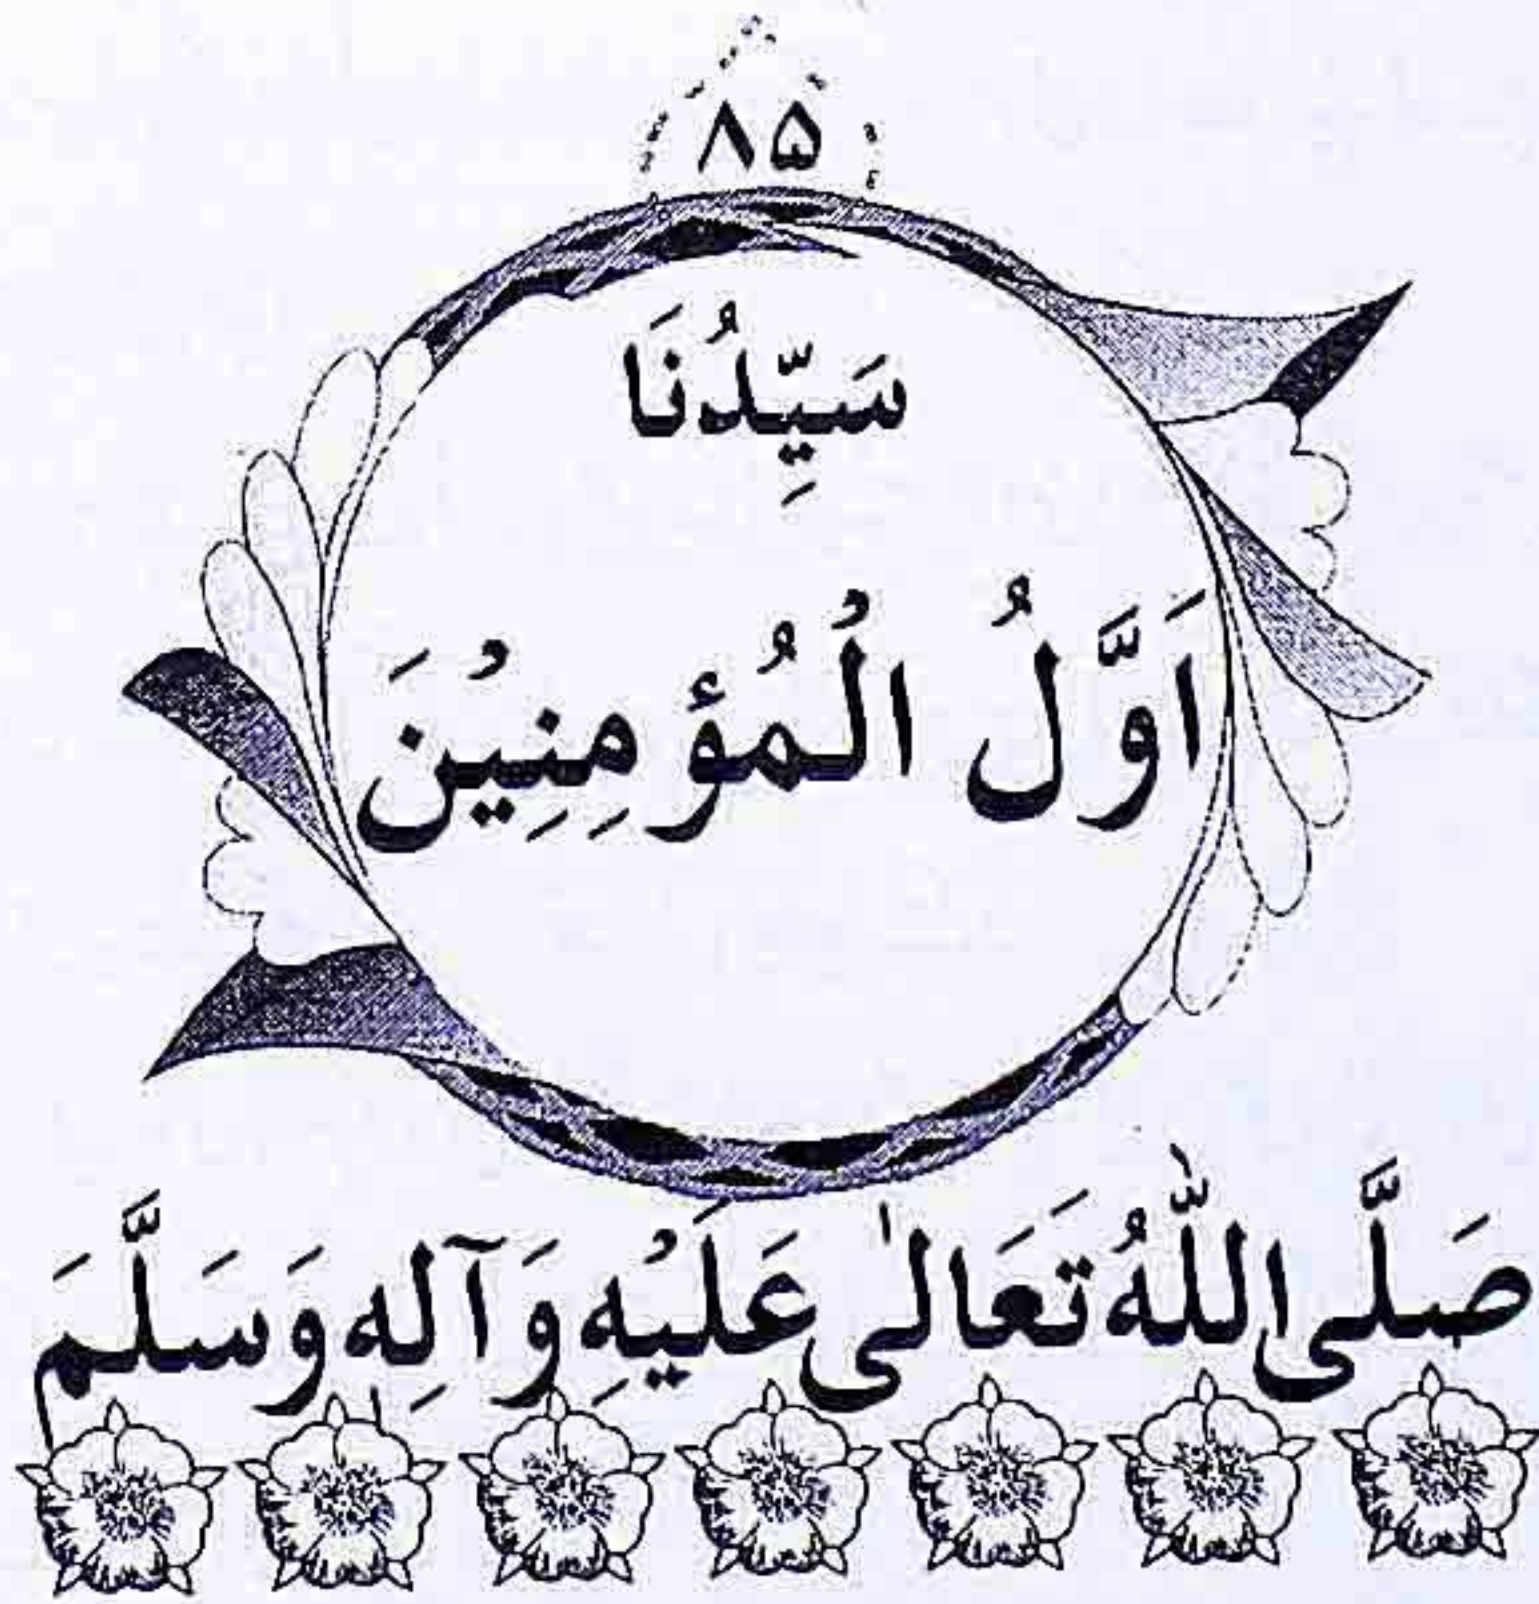 ۸۵
سَيِّدُنَا
اَوَّلُ الْمُؤمِنِيْنَ
صَلَّى اللّٰهُ تَعَالٰى عَلَيْهِ وَآلِهِ وَسَلَّمَ